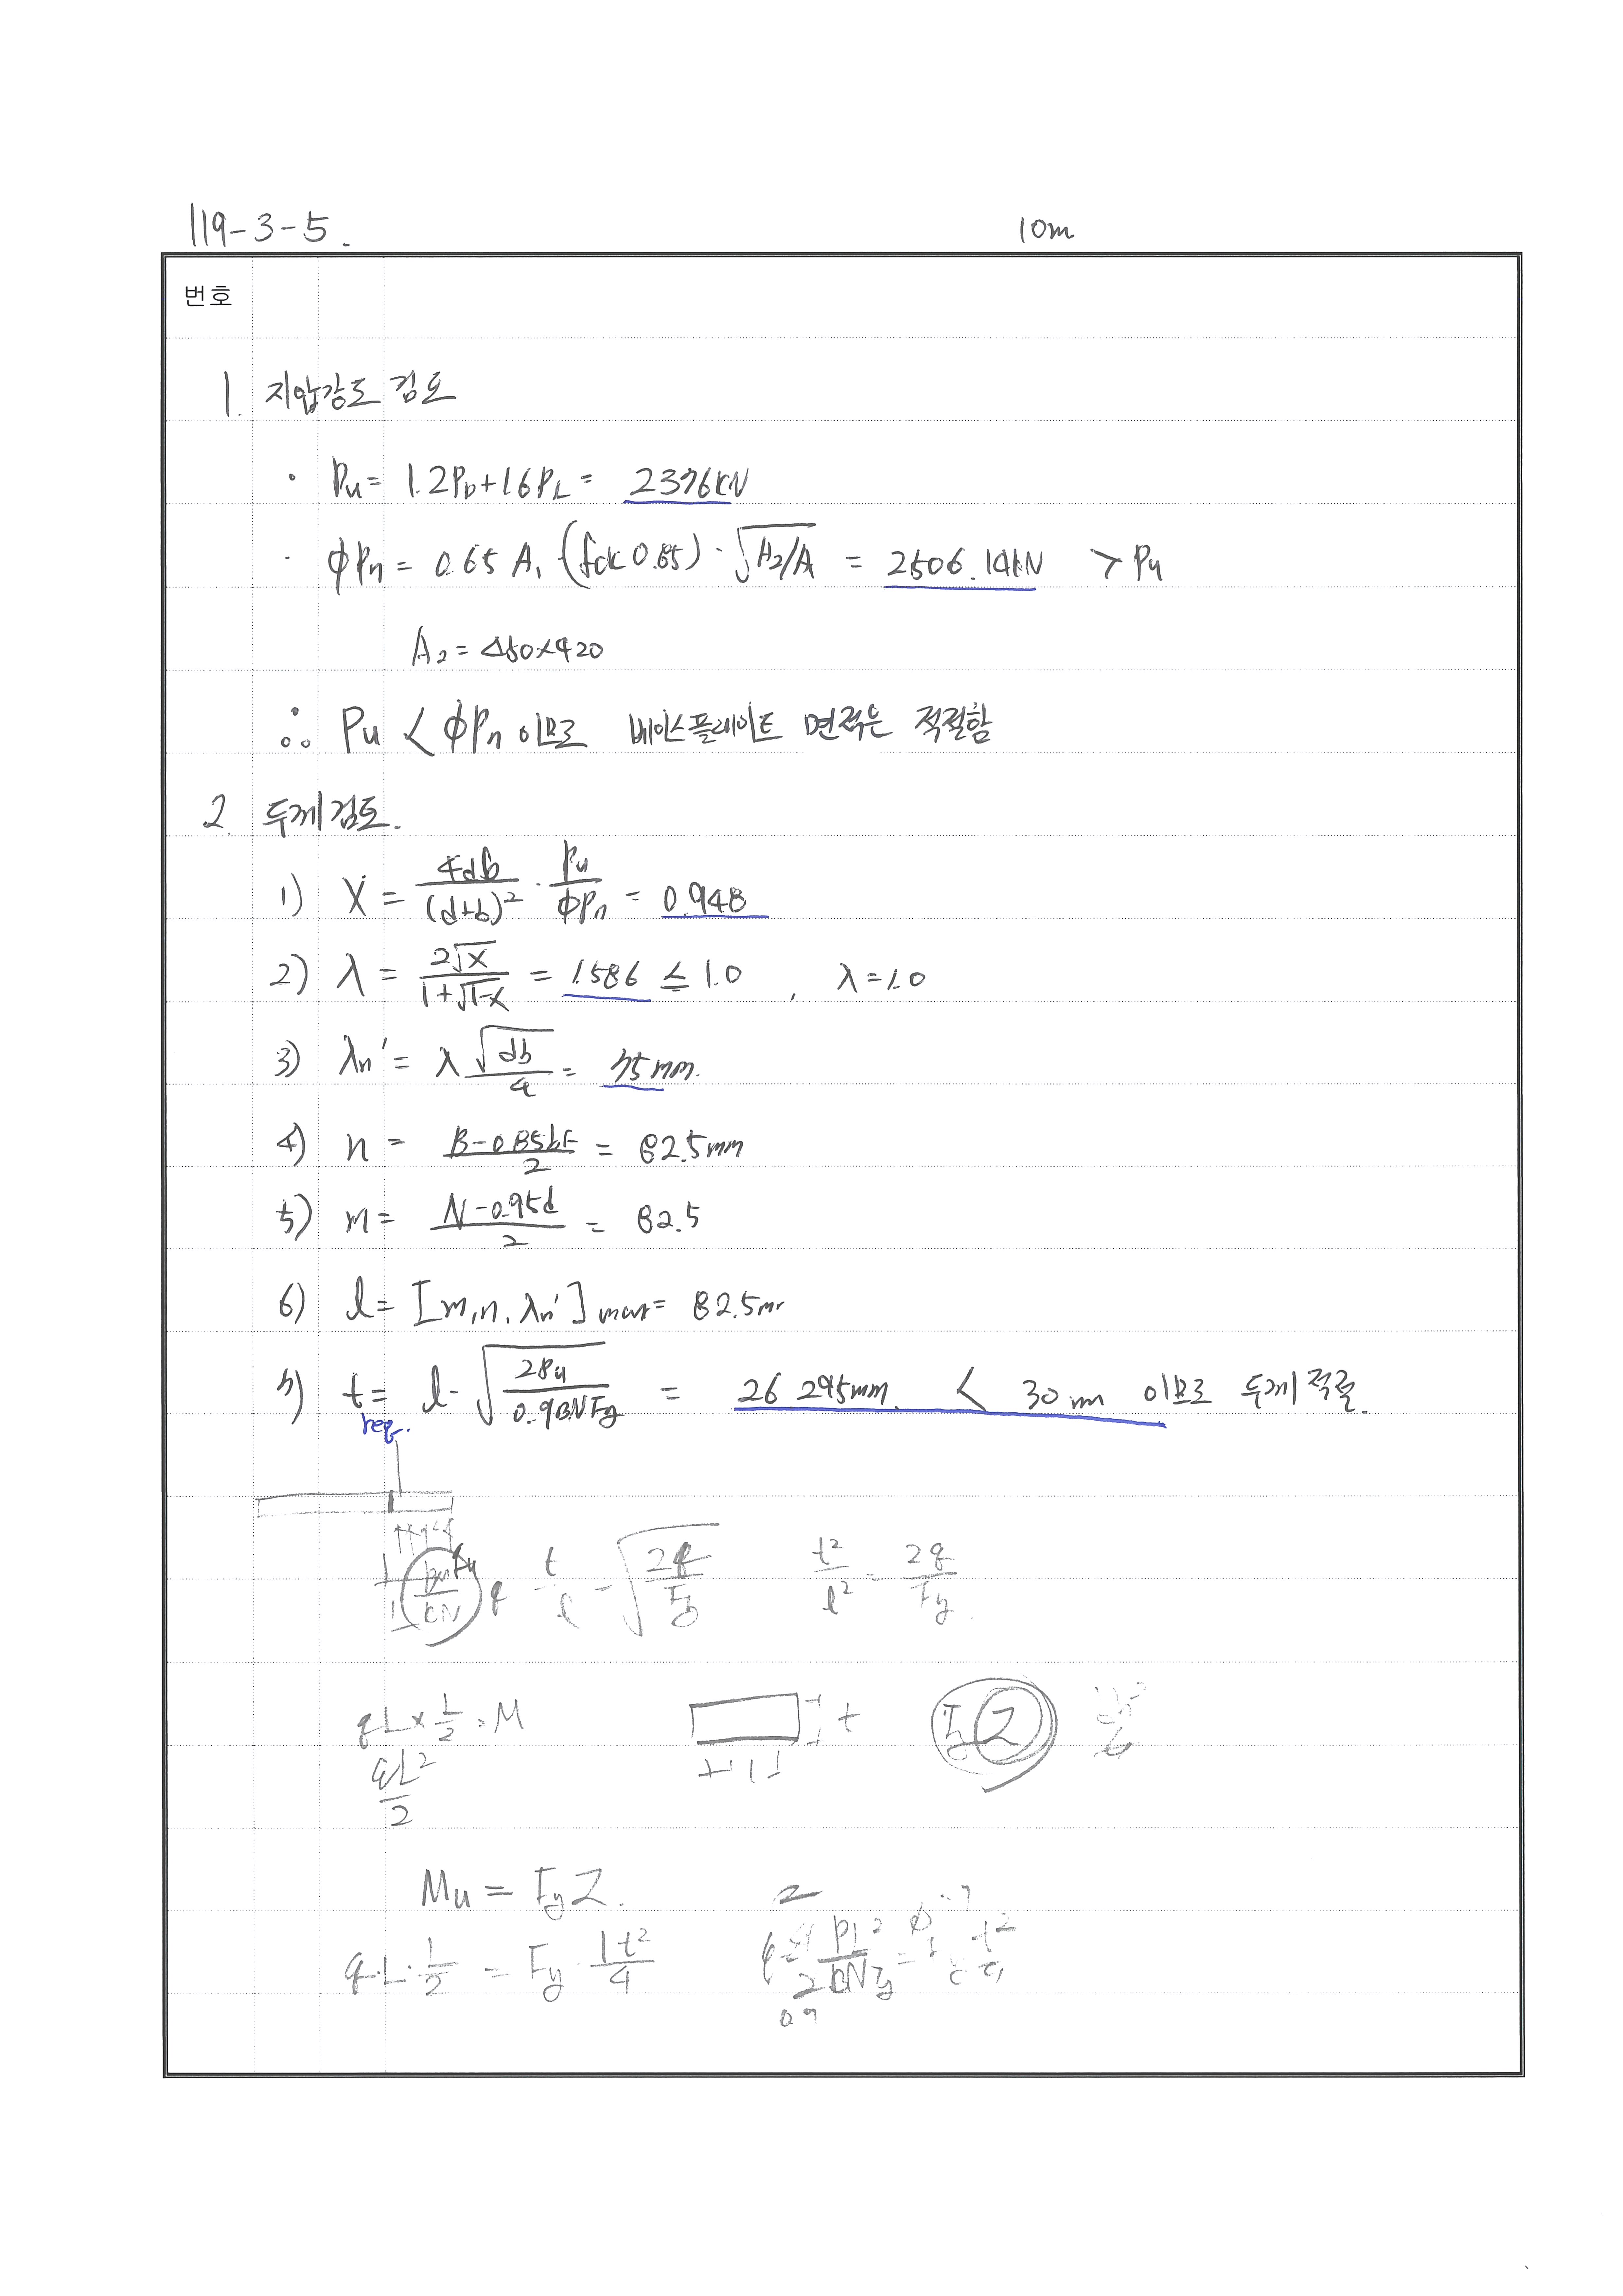 119-3-5.
10m
번호
1. 지압강도 검토
· Pu = 1.2PD+1.6PL = 2376kN
· φPn = 0.65 A1 (fck 0.85) · √A2/A1 = 2506.14kN > Pu
A2 = 480×420
∴ Pu < φPn 이므로 베이스플레이트 면적은 적절함
2. 두께검토.
1) X = 4db/(d+b)² · Pu/φPn = 0.948
2) λ = 2√X/1+√1-X = 1.586 ≤ 1.0 , λ=1.0
3) λn' = λ√db/4 = 75mm.
4) n = B-0.85bf/2 = 82.5mm
5) m = N-0.95d/2 = 82.5
6) l = [m, n, λn']max = 82.5mm
7) t req. = l · √2Pu/0.9BNFy = 26.295mm < 30mm 이므로 두께 적절.
t/l = √2q/Fy t²/l² = 2q/Fy.
qL × L/2 = M t Fy Z
qL²/2
Mu = FyZ.
q·L·L/2 = Fy · 1t²/4
0.9